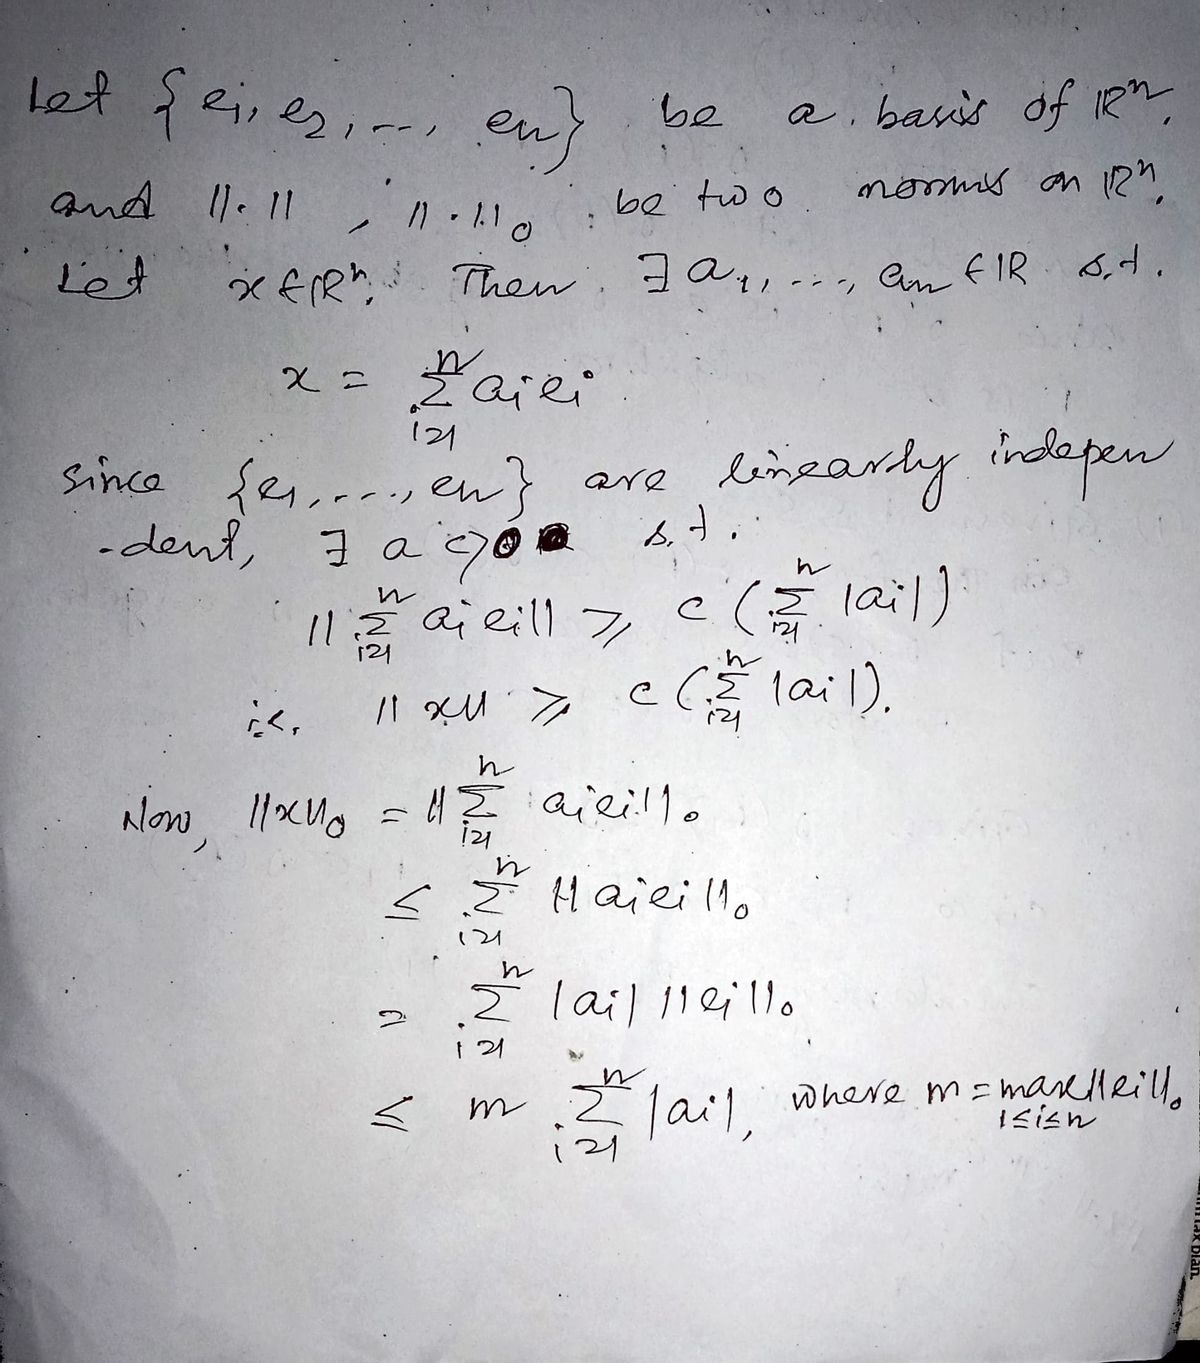 Let {e₁, e₂, ---, en} be a basis of ℝⁿ,
and ||·||, ||·||₀ be two norms on ℝⁿ.
Let x ∈ ℝⁿ. Then ∃ a₁, ---, an ∈ ℝ s.t.
x = ∑ⁿᵢ₌₁ aᵢeᵢ
since {e₁, ---, en} are linearly indepen
-dent, ∃ a c>0 s.t.
||∑ⁿᵢ₌₁ aᵢeᵢ|| ≥ c (∑ⁿᵢ₌₁ |aᵢ|)
i.e. ||x|| ≥ c (∑ⁿᵢ₌₁ |aᵢ|).
Now, ||x||₀ = ||∑ⁿᵢ₌₁ aᵢeᵢ||₀
≤ ∑ⁿᵢ₌₁ ||aᵢeᵢ||₀
= ∑ⁿᵢ₌₁ |aᵢ| ||eᵢ||₀
≤ m ∑ⁿᵢ₌₁ |aᵢ|, where m = max ||eᵢ||₀
1≤i≤n